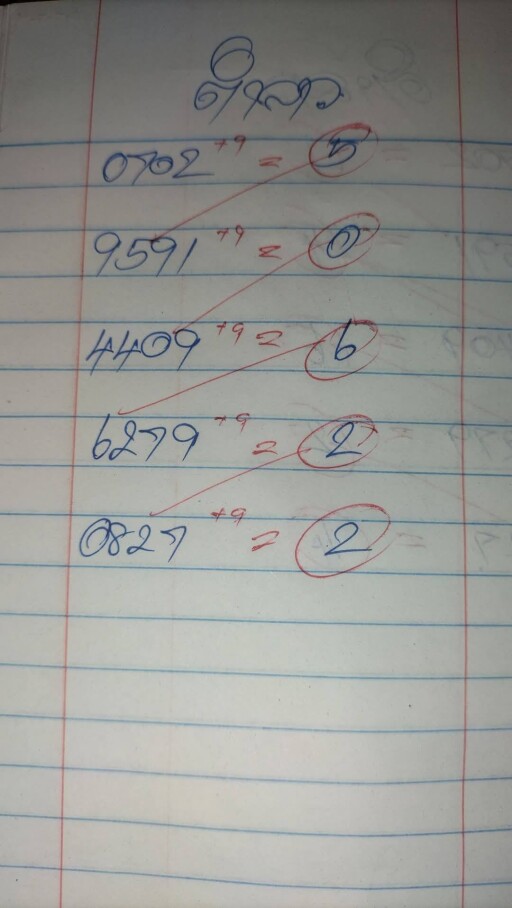 ตำลาว
0702 +9 = 5
9591 +9 = 0
4409 +9 = 6
6279 +9 = 2
0827 +9 = 2